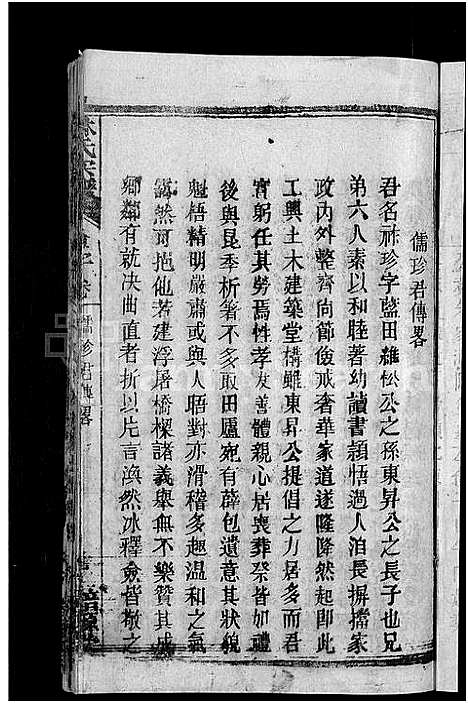 儒珍君傳畧
君名祚珍字藍田維松公之孫東昇公之長子也兄
弟六人素以和睦著幼讀書穎悟過人洎長摒擋家
政內外整齊尚節儉戒奢華家道遂隆隆然起即此
工興土木建築堂構雖東昇公提倡之力居多而君
實躬任其勞焉性孝友善體親心居喪葬祭皆如禮
後與昆季析箸不多取田廬宛有薛包遺意其狀貌
魁梧精明嚴肅或與人晤對亦滑稽多趣溫和之氣
藹然可挹他若建浮屠橋樑諸義舉無不樂贊其成
鄉鄰有就决曲直者折以片言渙然冰釋僉皆敬之
林氏宗譜
儒珍君傳畧